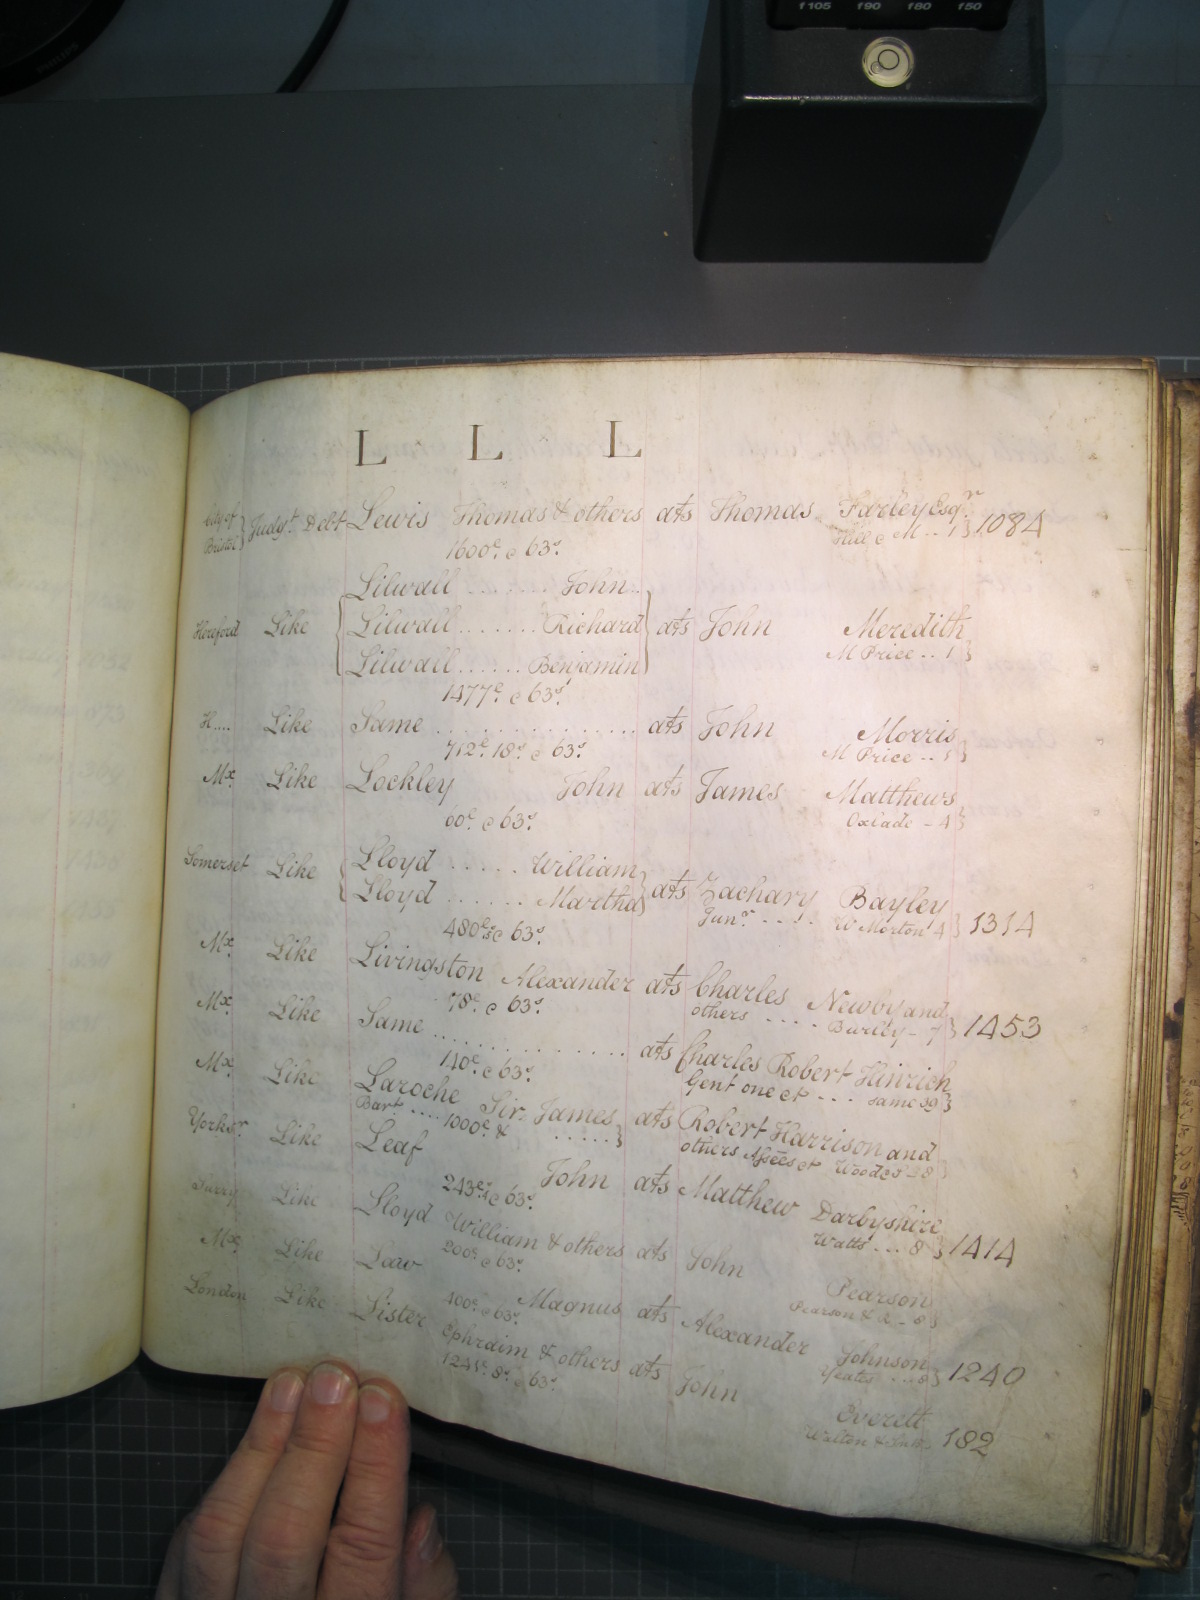 f105 f90 f80 f50
L L L
City of Bristol } Judgt. Debt Lewis Thomas & others ats Thomas Farley Esqr.
1600£. c 63s. Hill c M .. 1 } 1084
Lilwall ........ John ..
Hereford Like { Lilwall ....... Richard } ats John Meredith
Lilwall ...... Benjamin M Price .. 1 }
1477£. c 63s.
H.... Like Same ............... ats John Morris
712£. 18s. c 63s. M Price .. 1 }
Mx. Like Lockley John ats James Matthews
60£. c 63s. Oxiade - 4 }
Somerset Like { Lloyd ..... William
Lloyd ...... Martha } ats Zachary Bayley
480£. c 63s. Junr. .... W Morton 4 } 1314
Mx. Like Livingston Alexander ats Charles Newby and
78£. c 63s. others .... Burley - 7 } 1453
Mx. Like Same ............... ats Charles Robert Hinrich
140£. c 63s. Gent one &c ... same 39 }
Mx. Like Laroche Sir James ats Robert Harrison and
Bart .... 1000£. & ..... } others Assees &c Woodes - 28 }
Yorksr. Like Leaf John ats Matthew Darbyshire
243£. c 63s. Watts ... 8 } 1414
Surry Like Lloyd William & others ats John Pearson
200£. c 63s. Pearson & 2 - 8 }
Mx. Like Magnus ats Alexander Johnson
400£. c 63s. Yeates ... 8 } 1240
London Like Lister Ephraim & others ats John Everett
8s. c 63s. Walton & 182